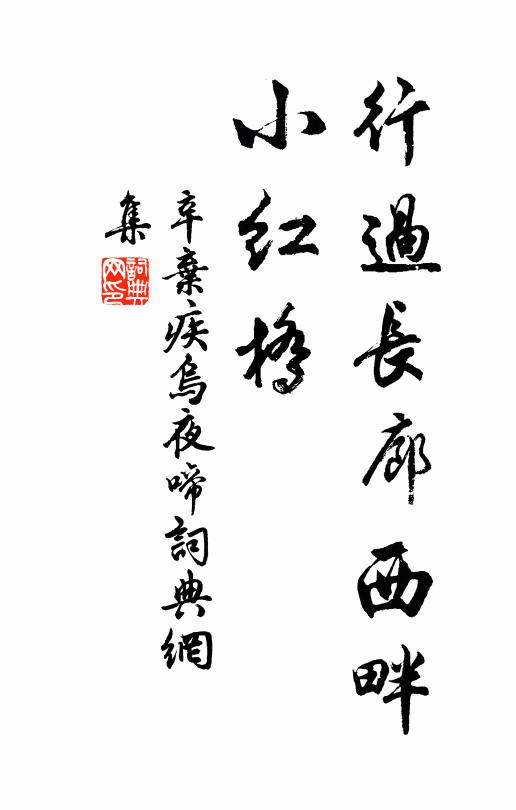 行過長廊西畔
小紅橋
辛棄疾烏夜啼詞典網
集
詞典
网印